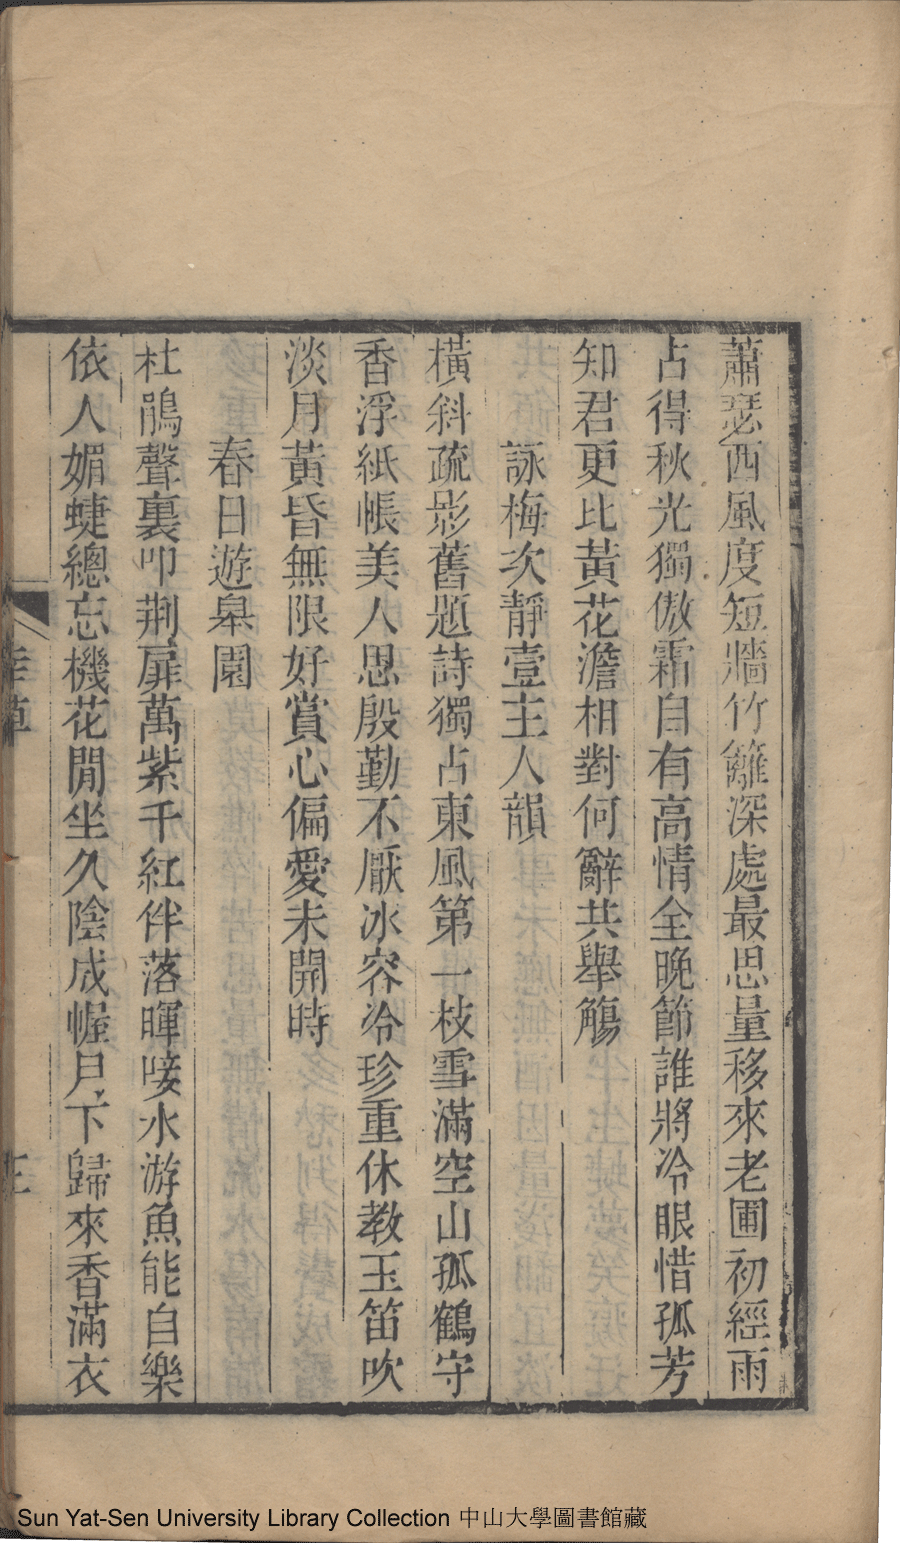 蕭瑟西風度短牆竹籬深處最思量移來老圃初經雨
占得秋光獨傲霜自有高情全晚節誰將冷眼惜孤芳
知君更比黃花澹相對何辭共舉觴
詠梅次靜壹主人韻
橫斜疏影舊題詩獨占東風第一枝雪滿空山孤鶴守
香浮紙帳美人思殷勤不厭冰容冷珍重休教玉笛吹
淡月黃昏無限好賞心偏愛未開時
春日遊皋園
杜鵑聲裏叩荆扉萬紫千紅伴落暉唼水游魚能自樂
依人媚蜨總忘機花閒坐久陰成幄月下歸來香滿衣
Sun Yat-Sen University Library Collection 中山大學圖書館藏